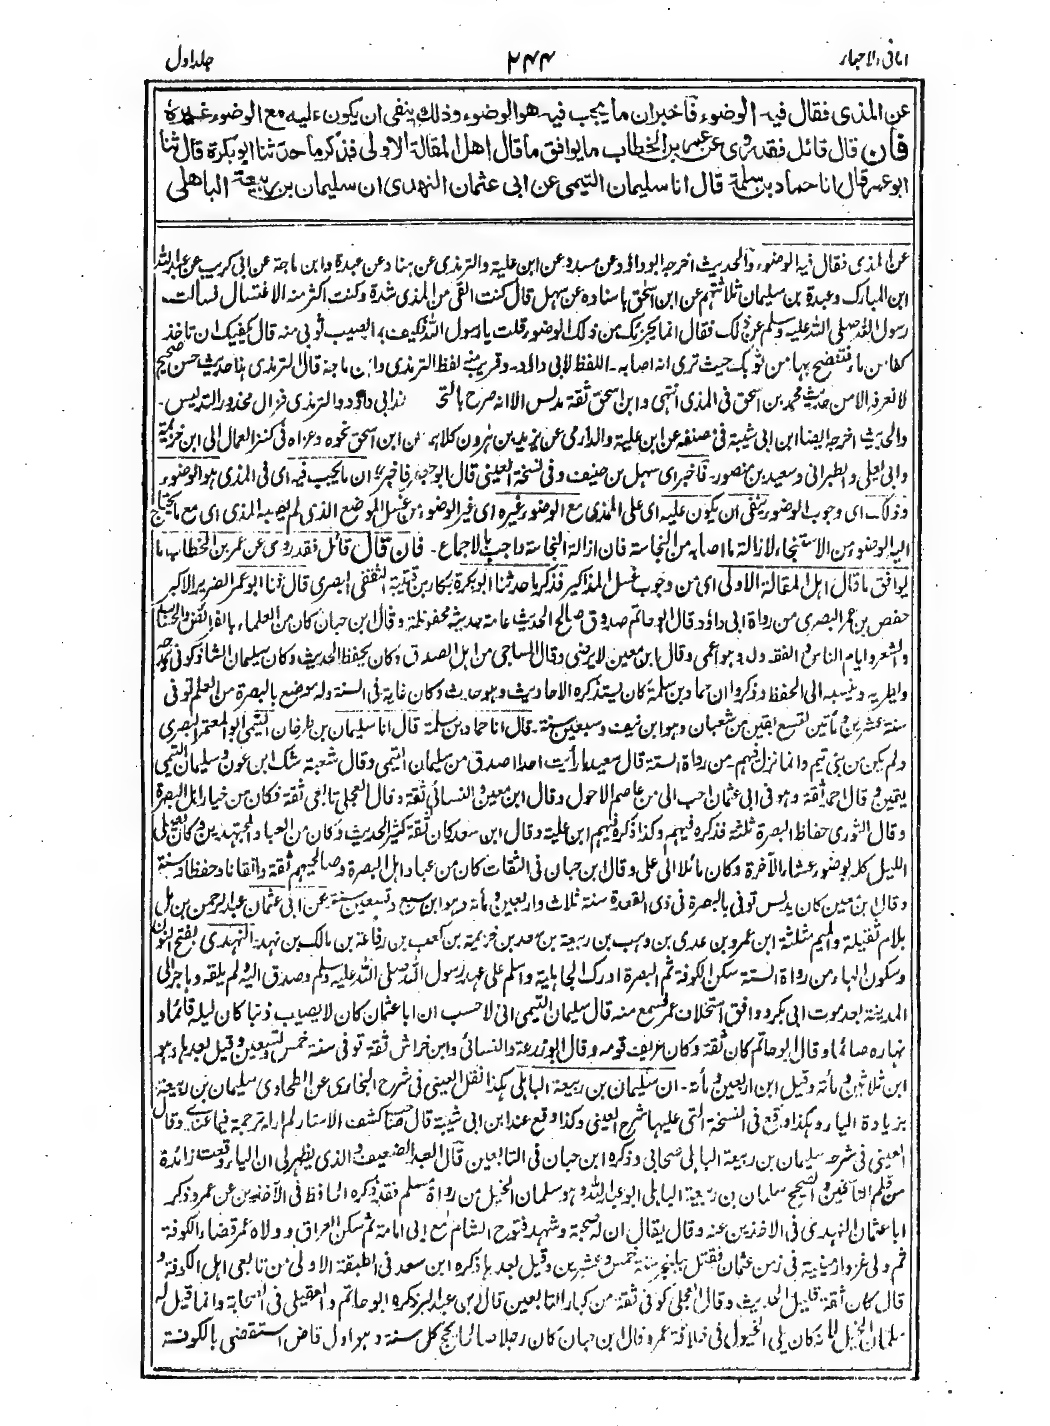 امانی الاحبار ۲۴۴ جلد اول
عن المذی فقال فیه الوضوء فأخبران ما یجب فیه هو الوضوء وذلك ینفی ان یکون علیه مع الوضوء غیره
فان قال قائل فقد روی عن عمر بن الخطاب ما یوافق ما قال اهل المقالة الاولی فذکر ما حدثنا ابو بکرة قال ثنا
ابو عمر قال انا حماد بن سلمة قال انا سلیمان التیمی عن ابی عثمان النهدی ان سلیمان بن ربیعة الباهلی
عن المذی فقال فیه الوضوء، والحدیث اخرجه ابو داود عن مسدد عن ابن علیة والترمذی عن هناد عن عبدة وابن ماجة عن ابی کریب عن عبد الله
ابن المبارک وعبدة بن سلیمان ثلاثتهم عن ابن اسحق باسناده عن سهل قال کنت القی من المذی شدة وکنت اکثر منه الاغتسال فسألت
رسول الله صلی الله علیه وسلم عن ذلک فقال انما یجزیک من ذلک الوضوء قلت یا رسول الله فکیف بما یصیب ثوبی منه قال یکفیک ان تاخذ
کفا من ماء فتنضح بها من ثوبک حیث تری انه اصابه۔ اللفظ لابی داود۔ وقریب منه لفظ الترمذی وابن ماجة قال الترمذی هذا حدیث حسن صحیح
لا نعرفه الا من حدیث محمد بن اسحق فی المذی انتهی وابن اسحق ثقة مدلس الا انه صرح بالتحـ ـ عند ابی داود والترمذی فزال محذور التدلیس۔
والحدیث اخرجه ایضا ابن ابی شیبة فی مصنفه عن ابن علیة والدارمی عن یزید بن هرون کلاهما عن ابن اسحق نحوه وعزاه فی کنز العمال الی ابن خزیمة
وابی یعلی والطبرانی وسعید بن منصور۔ فأخبر ای سهل بن حنیف وفی نسخة العینی قال ابو جعفر فاخبر ان ما یجب فیه ای فی المذی هو الوضوء
وذلک ای وجوب الوضوء ینفی ان یکون علیه ای علی المذی مع الوضوء غیره ای غیر الوضوء من غسل الموضع الذی لم یصبه المذی ای مع ما یحتاج
الیه الوضوء من الاستنجاء لازالة ما اصابه من النجاسة فان ازالة النجاسة واجب بالاجماع۔ فان قال قائل فقد روی عن عمر بن الخطاب ما
یوافق ما قال اهل المقالة الاولی ای من وجوب غسل المذاکیر فذکر ما حدثنا ابو بکرة بکار بن قتیبة الثقفی البصری قال ثنا ابو عمر الضریر الاکبر
حفص بن عمر البصری من رواة ابی داود قال ابو حاتم صدوق صالح الحدیث عامة حدیثه محفوظة وقال ابن حبان کان من العلماء بالفرائض والحساب
والشعر وایام الناس والفقه ولد وهو اعمی وقال ابن معین لا یرضی وقال الساجی من اهل الصدق وکان یحفظ الحدیث وکان سلیمان الشاذکونی یمدحه
ویطریه وینسبه الی الحفظ وذکروا ان حماد بن سلمة کان یستذکره الاحادیث وهو حادث وکان غایة فی السنة وله موضع بالبصرة من العلم توفی
سنة عشرین ومأتین لتسع بقین من شعبان وهو ابن نیف وسبعین سنة۔ قال انا حماد بن سلمة قال انا سلیمان بن طرخان التیمی ابو المعتمر البصری
ولم یکن من بنی تیم وانما نزل فیهم۔ من رواة الستة قال سعید ما رأیت احدا اصدق من سلیمان التیمی وقال شعبة شک ابن عون وسلیمان التیمی
یقین وقال احمد ثقة وهو فی ابی عثمان احب الی من عاصم الاحول وقال ابن معین والنسائی ثقة وقال العجلی تابعی ثقة فکان من خیار اهل البصرة
وقال الثوری حفاظ البصرة ثلثة فذکره فیهم وکذا ذکره فیهم ابن علیة وقال ابن سعد کان ثقة کثیر الحدیث وکان من العباد المجتهدین وکان یصلی
اللیل کله بوضوء عشاء الآخرة وکان مائلا الی علی وقال ابن حبان فی الثقات کان من عباد اهل البصرة وصالحیهم ثقة واتقانا وحفظا وسنة
وقال ابن معین کان یدلس توفی بالبصرة فی ذی القعدة سنة ثلاث واربعین ومأة وهو ابن سبع وتسعین سنة۔ عن ابی عثمان عبد الرحمن بن مل
بلام ثقیلة والمیم مثلثة ابن عمرو بن عدی بن وهب بن ربیعة بن سعد بن خزیمة بن کعب بن رفاعة بن مالک بن نهد۔ النهدی بفتح النون
وسکون الهاء۔ من رواة الستة سکن الکوفة ثم البصرة ادرک الجاهلیة واسلم علی عهد رسول الله صلی الله علیه وسلم وصدق الیه ولم یلقه وهاجر الی
المدینة بعد موت ابی بکر ووافق استخلاف عمر فسمع منه قال سلیمان التیمی انی لاحسب ان ابا عثمان کان لا یصیب ذنبا کان لیله قائما و
نهاره صائما وقال ابو حاتم کان ثقة وکان عریف قومه وقال ابو زرعة والنسائی وابن خراش ثقة توفی سنة خمس وتسعین وقیل بعدها وهو
ابن ثلاثین ومأة وقیل ابن اربعین ومأة۔ ان سلیمان بن ربیعة الباهلی هکذا نقل العینی فی شرح البخاری عن الطحاوی سلیمان بن ربیعة
بزیادة الیاء وهکذا وقع فی النسخة التی علیها شرح العینی وکذا وقع عند ابن ابی شیبة قال صاحب کشف الاستار لم ار له ترجمة فیما عندی وقال
العینی فی شرحه سلیمان بن ربیعة الباهلی صحابی وذکره ابن حبان فی التابعین قال العبد الضعیف والذی یظهر لی ان الیاء وقعت زائدة
من قلم الناسخین والصحیح سلمان بن ربیعة الباهلی ابو عبد الله وهو سلمان الخیل من رواة مسلم فقد ذکره الحافظ فی الآخذین عن عمر وذکر
ابا عثمان النهدی فی الاخذین عنه وقال یقال ان له صحبة وشهد فتوح الشام مع ابی امامة ثم سکن العراق وولاه عمر قضاء الکوفة
ثم ولی غزو ارمینیة فی زمن عثمان فقتل ببلنجر سنة خمس وعشرین وقیل بعدها ذکره ابن سعد فی الطبقة الاولی من تابعی اهل الکوفة و
قال کان ثقة قلیل الحدیث وقال العجلی کوفی ثقة من کبار التابعین قال ابن عبد البر ذکره ابو حاتم والعقیلی فی الصحابة وانما قیل له
سلمان الخیل لانه کان یلی الخیول فی خلافة عمر وقال ابن حبان کان رجلا صالحا یحج کل سنة وهو اول قاض استقضی بالکوفة